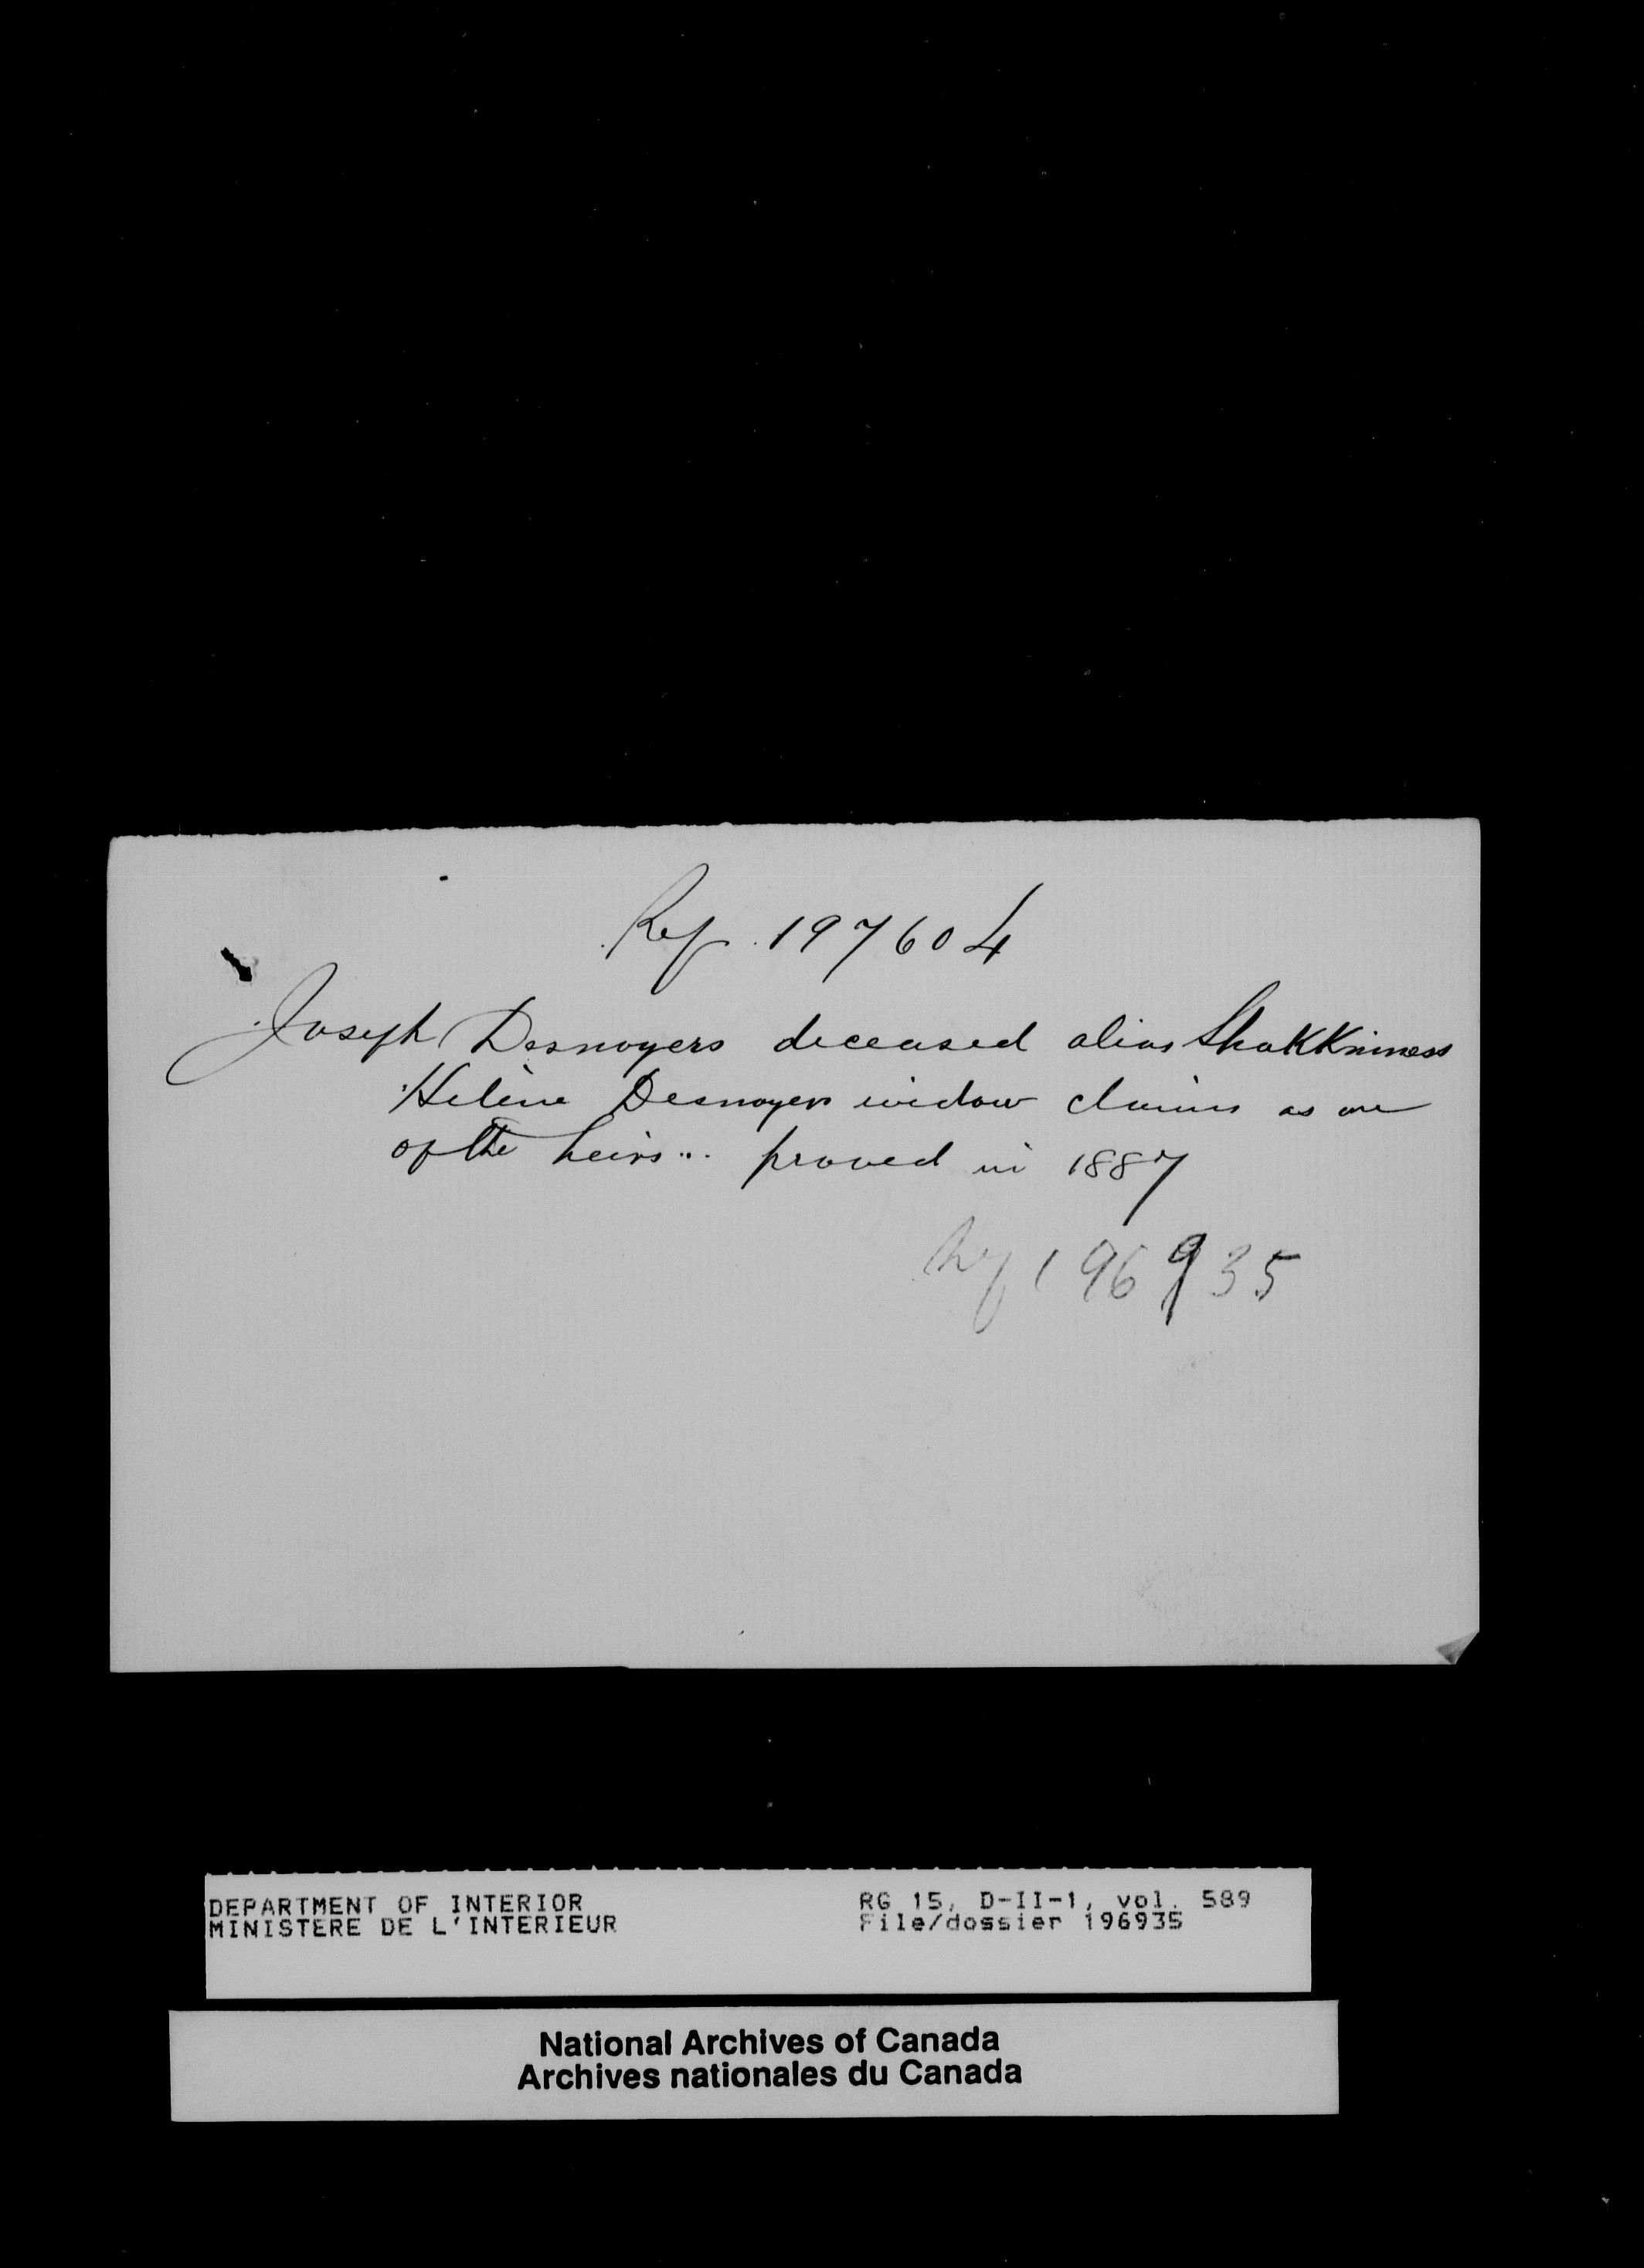 Ref. 197604
Joseph Desnoyers deceased alias ShakKniness
Helène Desnoyers widow claims as one
of the heirs... proved in 1887
Ref 196935
DEPARTMENT OF INTERIOR
MINISTERE DE L'INTERIEUR
RG 15, D-II-1, vol. 589
File/dossier 196935
National Archives of Canada
Archives nationales du Canada